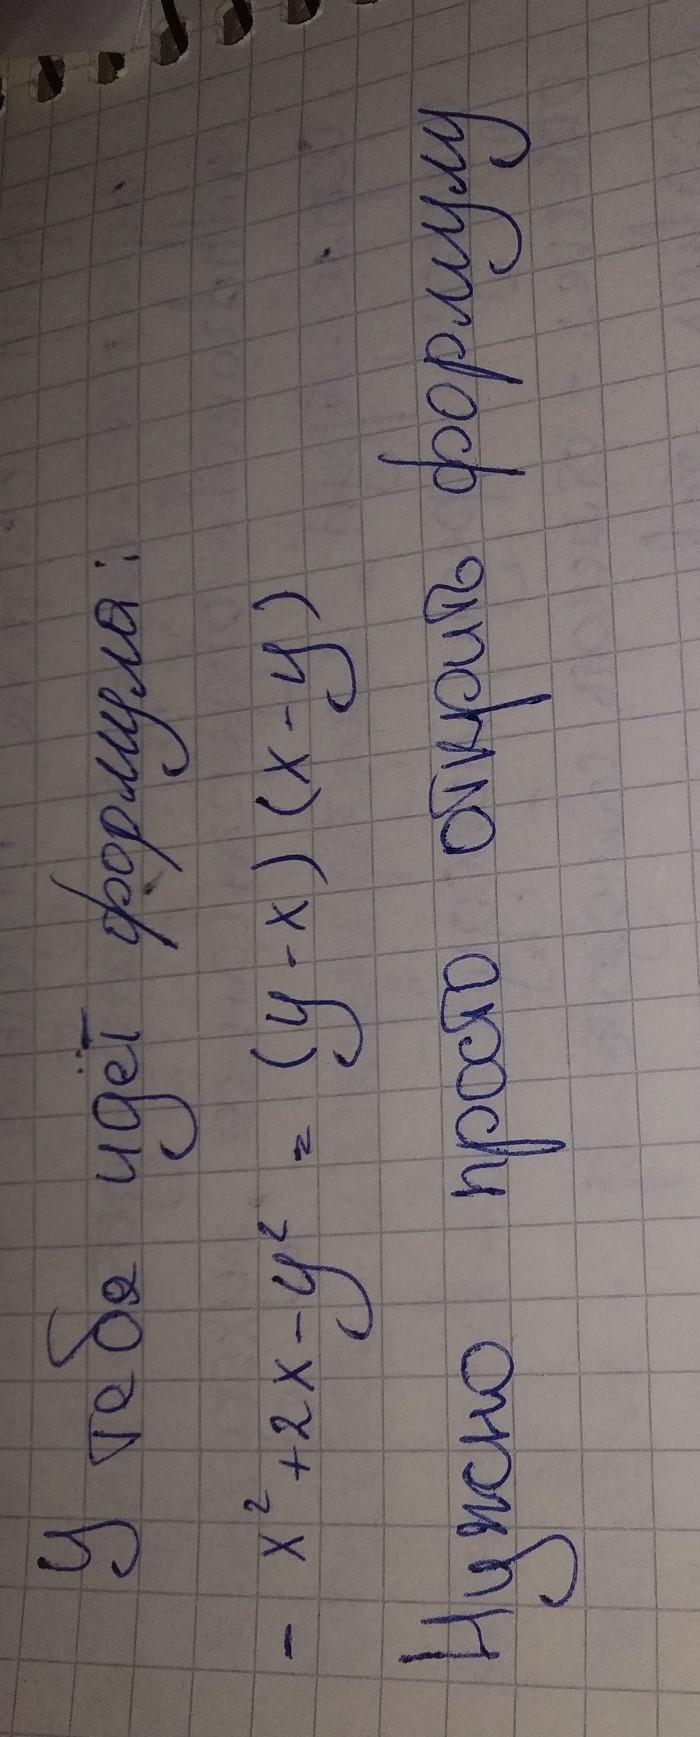 У тебя идёт формула:
- x² + 2x - y² = (y - x) (x - y)
Нужно проста открить формулу